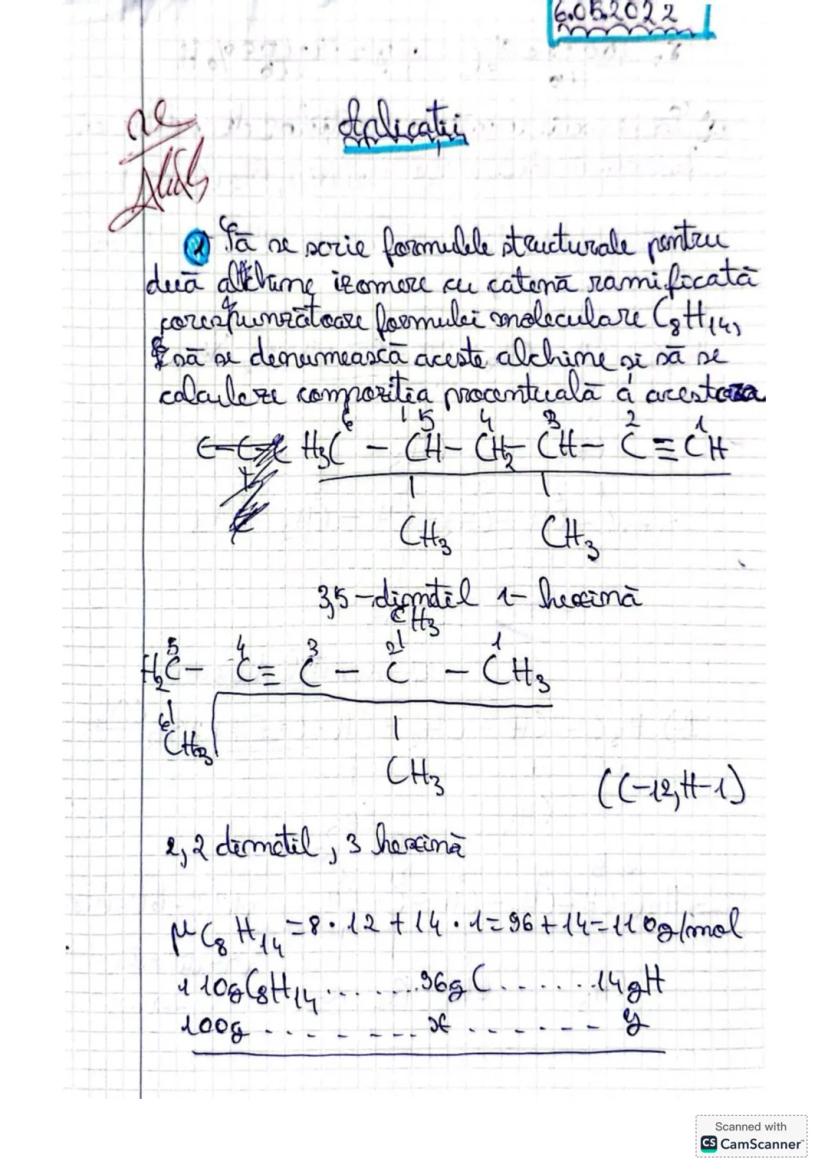 6.05.2022
Aplicații
1 Să se scrie formulele structurale pentru
două alchine izomere cu catenă ramificată
corespunzătoare formulei moleculare C8H14,
să se denumească aceste alchine și să se
calculeze compoziția procentuală a acestora
6 5 4 3 2 1
H3C - CH - CH2 - CH - C ≡ CH
CH3 CH3
3,5-dimetil 1- hexină
CH3
5 4 3 2 1
H2C - C ≡ C - C - CH3
6
CH3
CH3
(C-12, H-1)
2,2 dimetil, 3 hexină
μ C8H14 = 8 · 12 + 14 · 1 = 96 + 14 = 110g/mol
110g C8H14 ....... 96g C ...... 14gH
100g ....... x ....... y
Scanned with
CS CamScanner